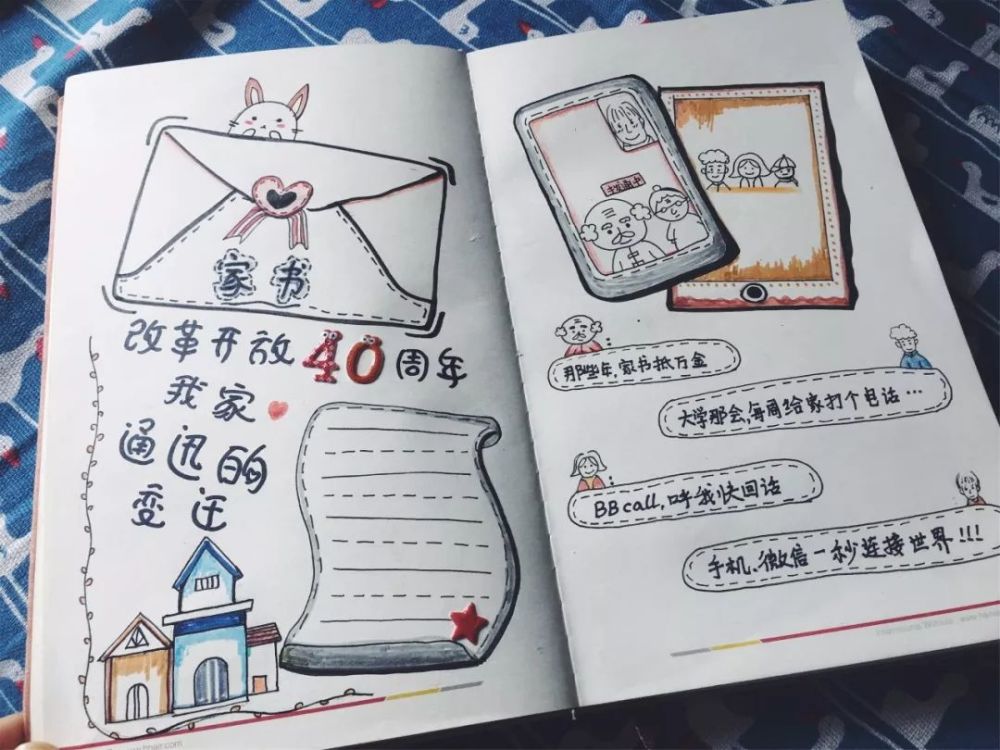 家书
改革开放40周年
我家
通迅的
变迁
那些年,家书抵万金
大学那会,每周给家打个电话…
BB call,呼我快回话
手机、微信一秒连接世界!!!